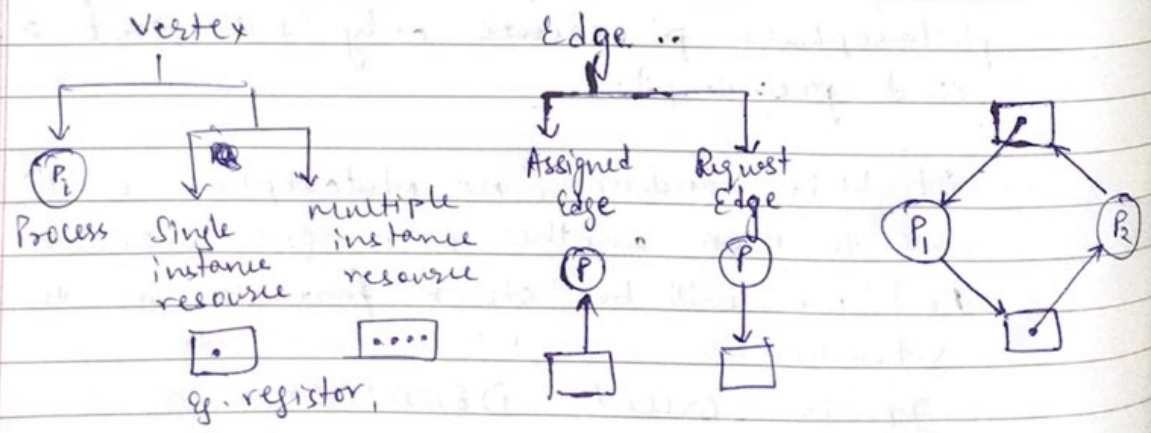 Vertex
Edge ..
Pi
Process
Single
instance
resource
multiple
instance
resource
eg. registor,
Assigned
Edge
P
Request
Edge
P
P1
P2